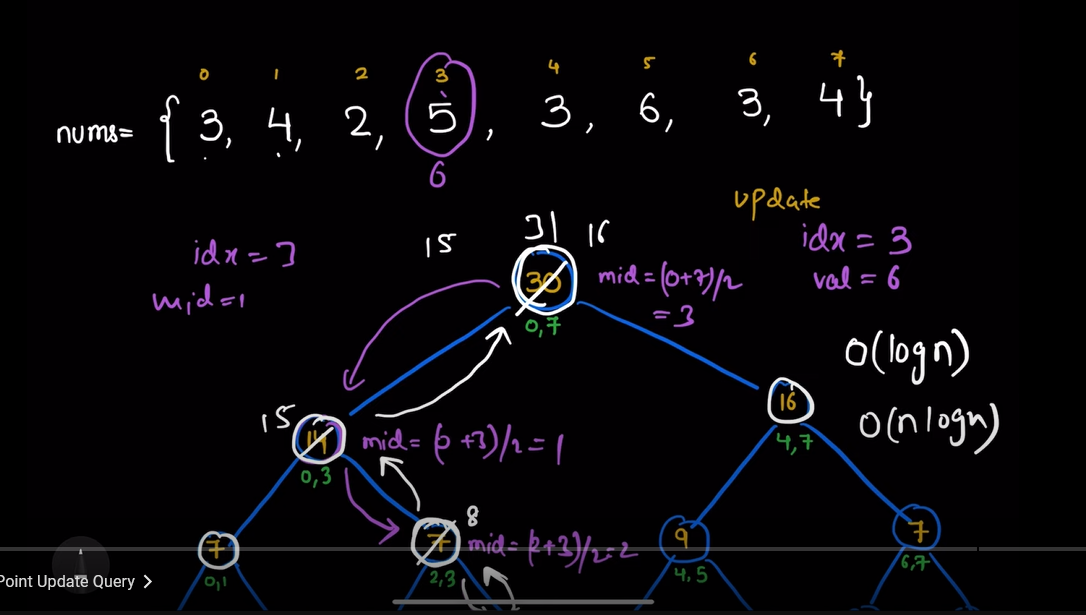 0 1 2 3 4 5 6 7
nums= { 3, 4, 2, 5, 3, 6, 3, 4 }
6
update
idx = 3
val = 6
idx = 3
mid = 1
15 31 16
30
mid = (0+7)/2
= 3
0,7
O(logn)
O(nlogn)
16
4,7
15
14
mid = (0+3)/2 = 1
0,3
8
7
0,1
7
mid = (2+3)/2 = 2
2,3
9
4,5
7
6,7
Point Update Query